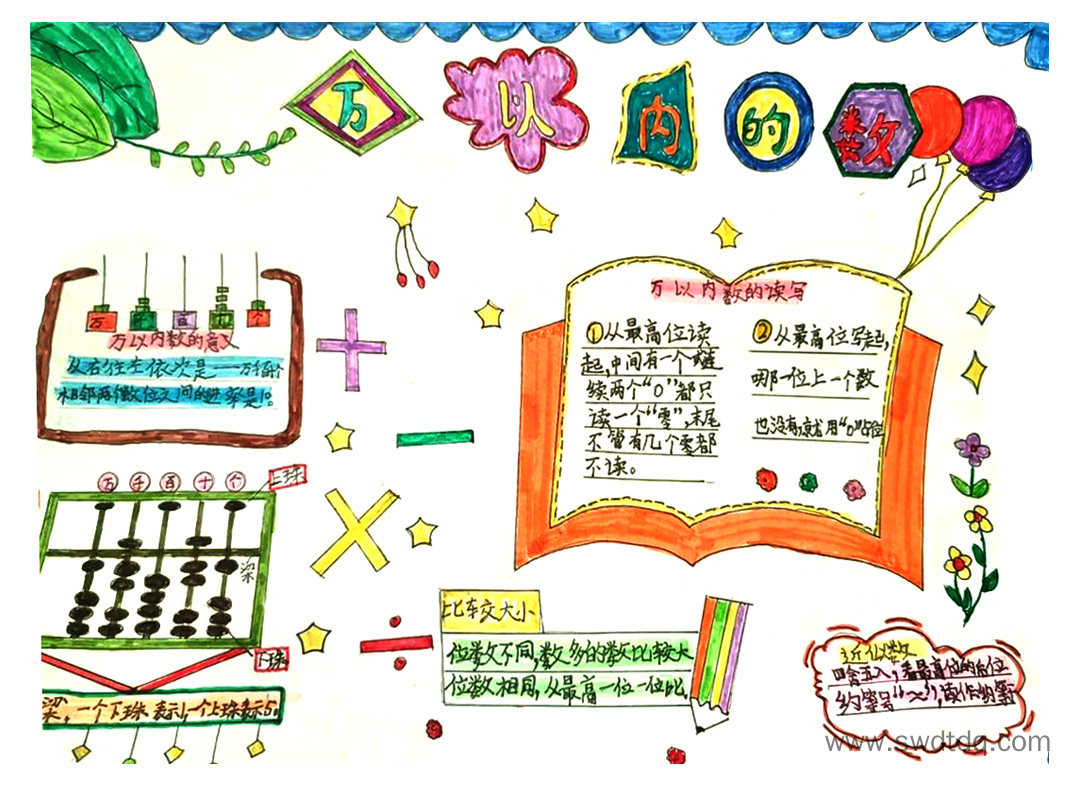 万以内的数
万 千 百 十 个
万以内数的意义
从右往左依次是一万个
相邻两个数位之间的进率是10。
万 千 百 十 个
上珠
梁
下珠
梁,一个下珠表示1,一个上珠表示5。
万以内数的读写
①从最高位读
起,中间有一个或连
续两个“0”都只
读一个“零”,末尾
不管有几个零都
不读。
②从最高位写起,
哪一位上一个数
也没有,就用“0”占位
比较大小
位数不同,数多的数比较大
位数相同,从最高一位一位比.
近似数
四舍五入,看最高位的后位
约等号“≈”,读作约等
www.swdtdq.com